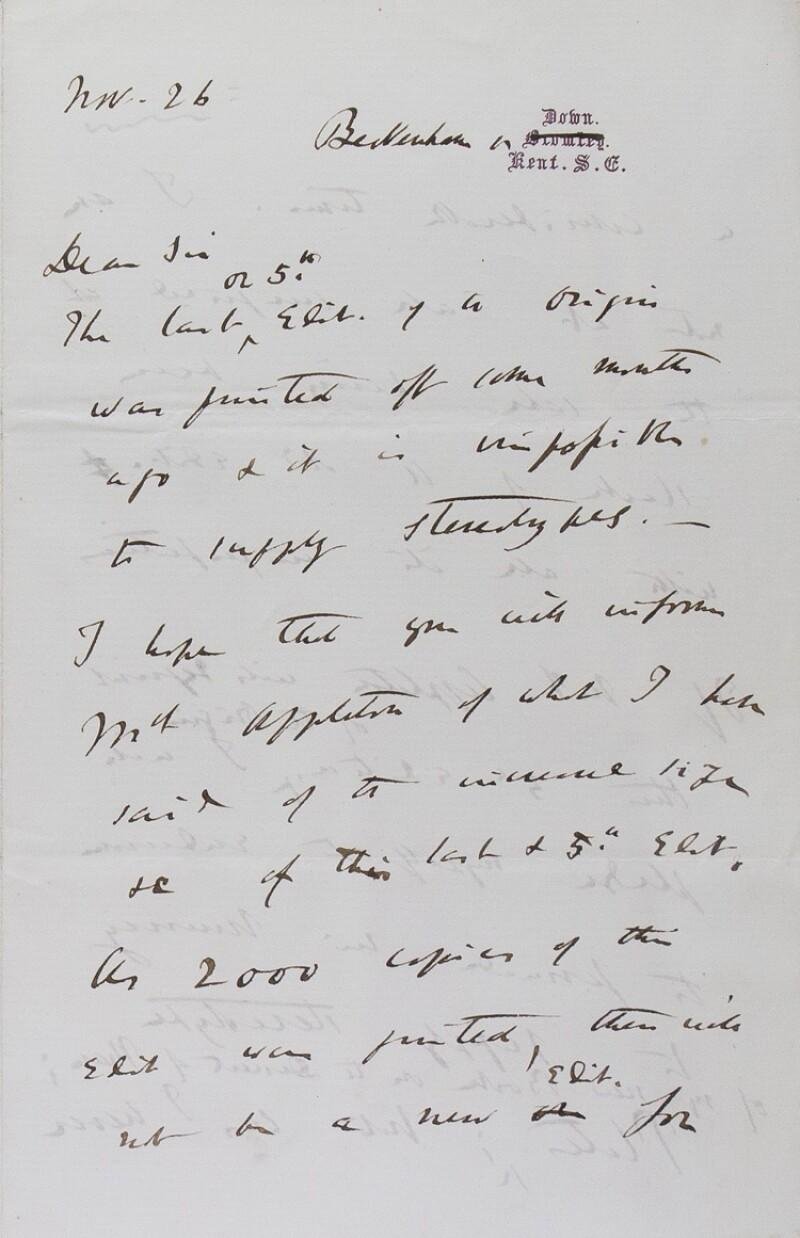 Nov. 26
Down.
Beckenham
Bromley.
Kent. S.E.
Dear Sir
or 5th
The last Edit. of the Origin
was printed off some months
ago & it is impossible
to supply stereotypes. —
I hope that you will inform
Mess Appleton of what I have
said of the increased size
&c of this last & 5th Edit.
As 2000 copies of this
Edit was printed, there will
Edit.
not be a new for